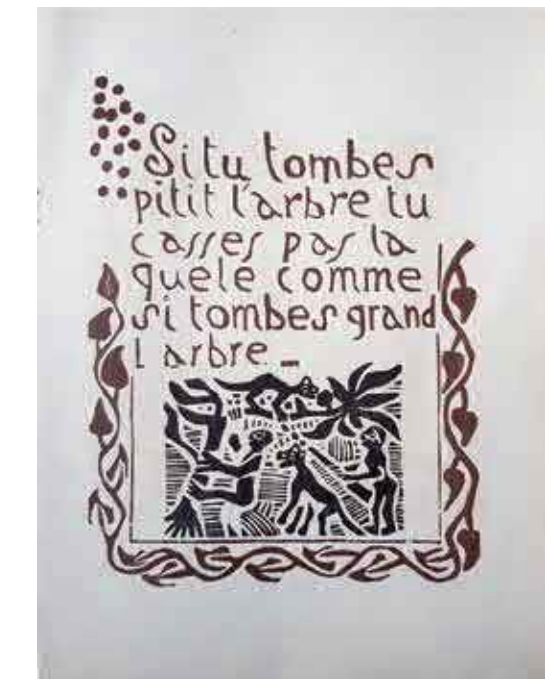 Si tu tombes
pitit l'arbre tu
casses pas la
quele comme
si tombes grand
l arbre _